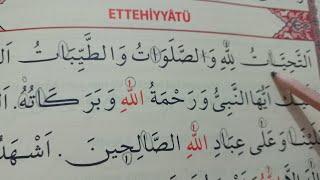 ETTEHİYYÂTÜ
اَلتَّحِيَّاتُ لِلّٰهِ وَالصَّلَوَاتُ وَالطَّيِّبَاتُ
اَيُّهَا النَّبِيُّ وَرَحْمَةُ اللّٰهِ وَبَرَكَاتُهُ.
وَعَلٰى عِبَادِ اللّٰهِ الصَّالِحِينَ. اَشْهَدُ